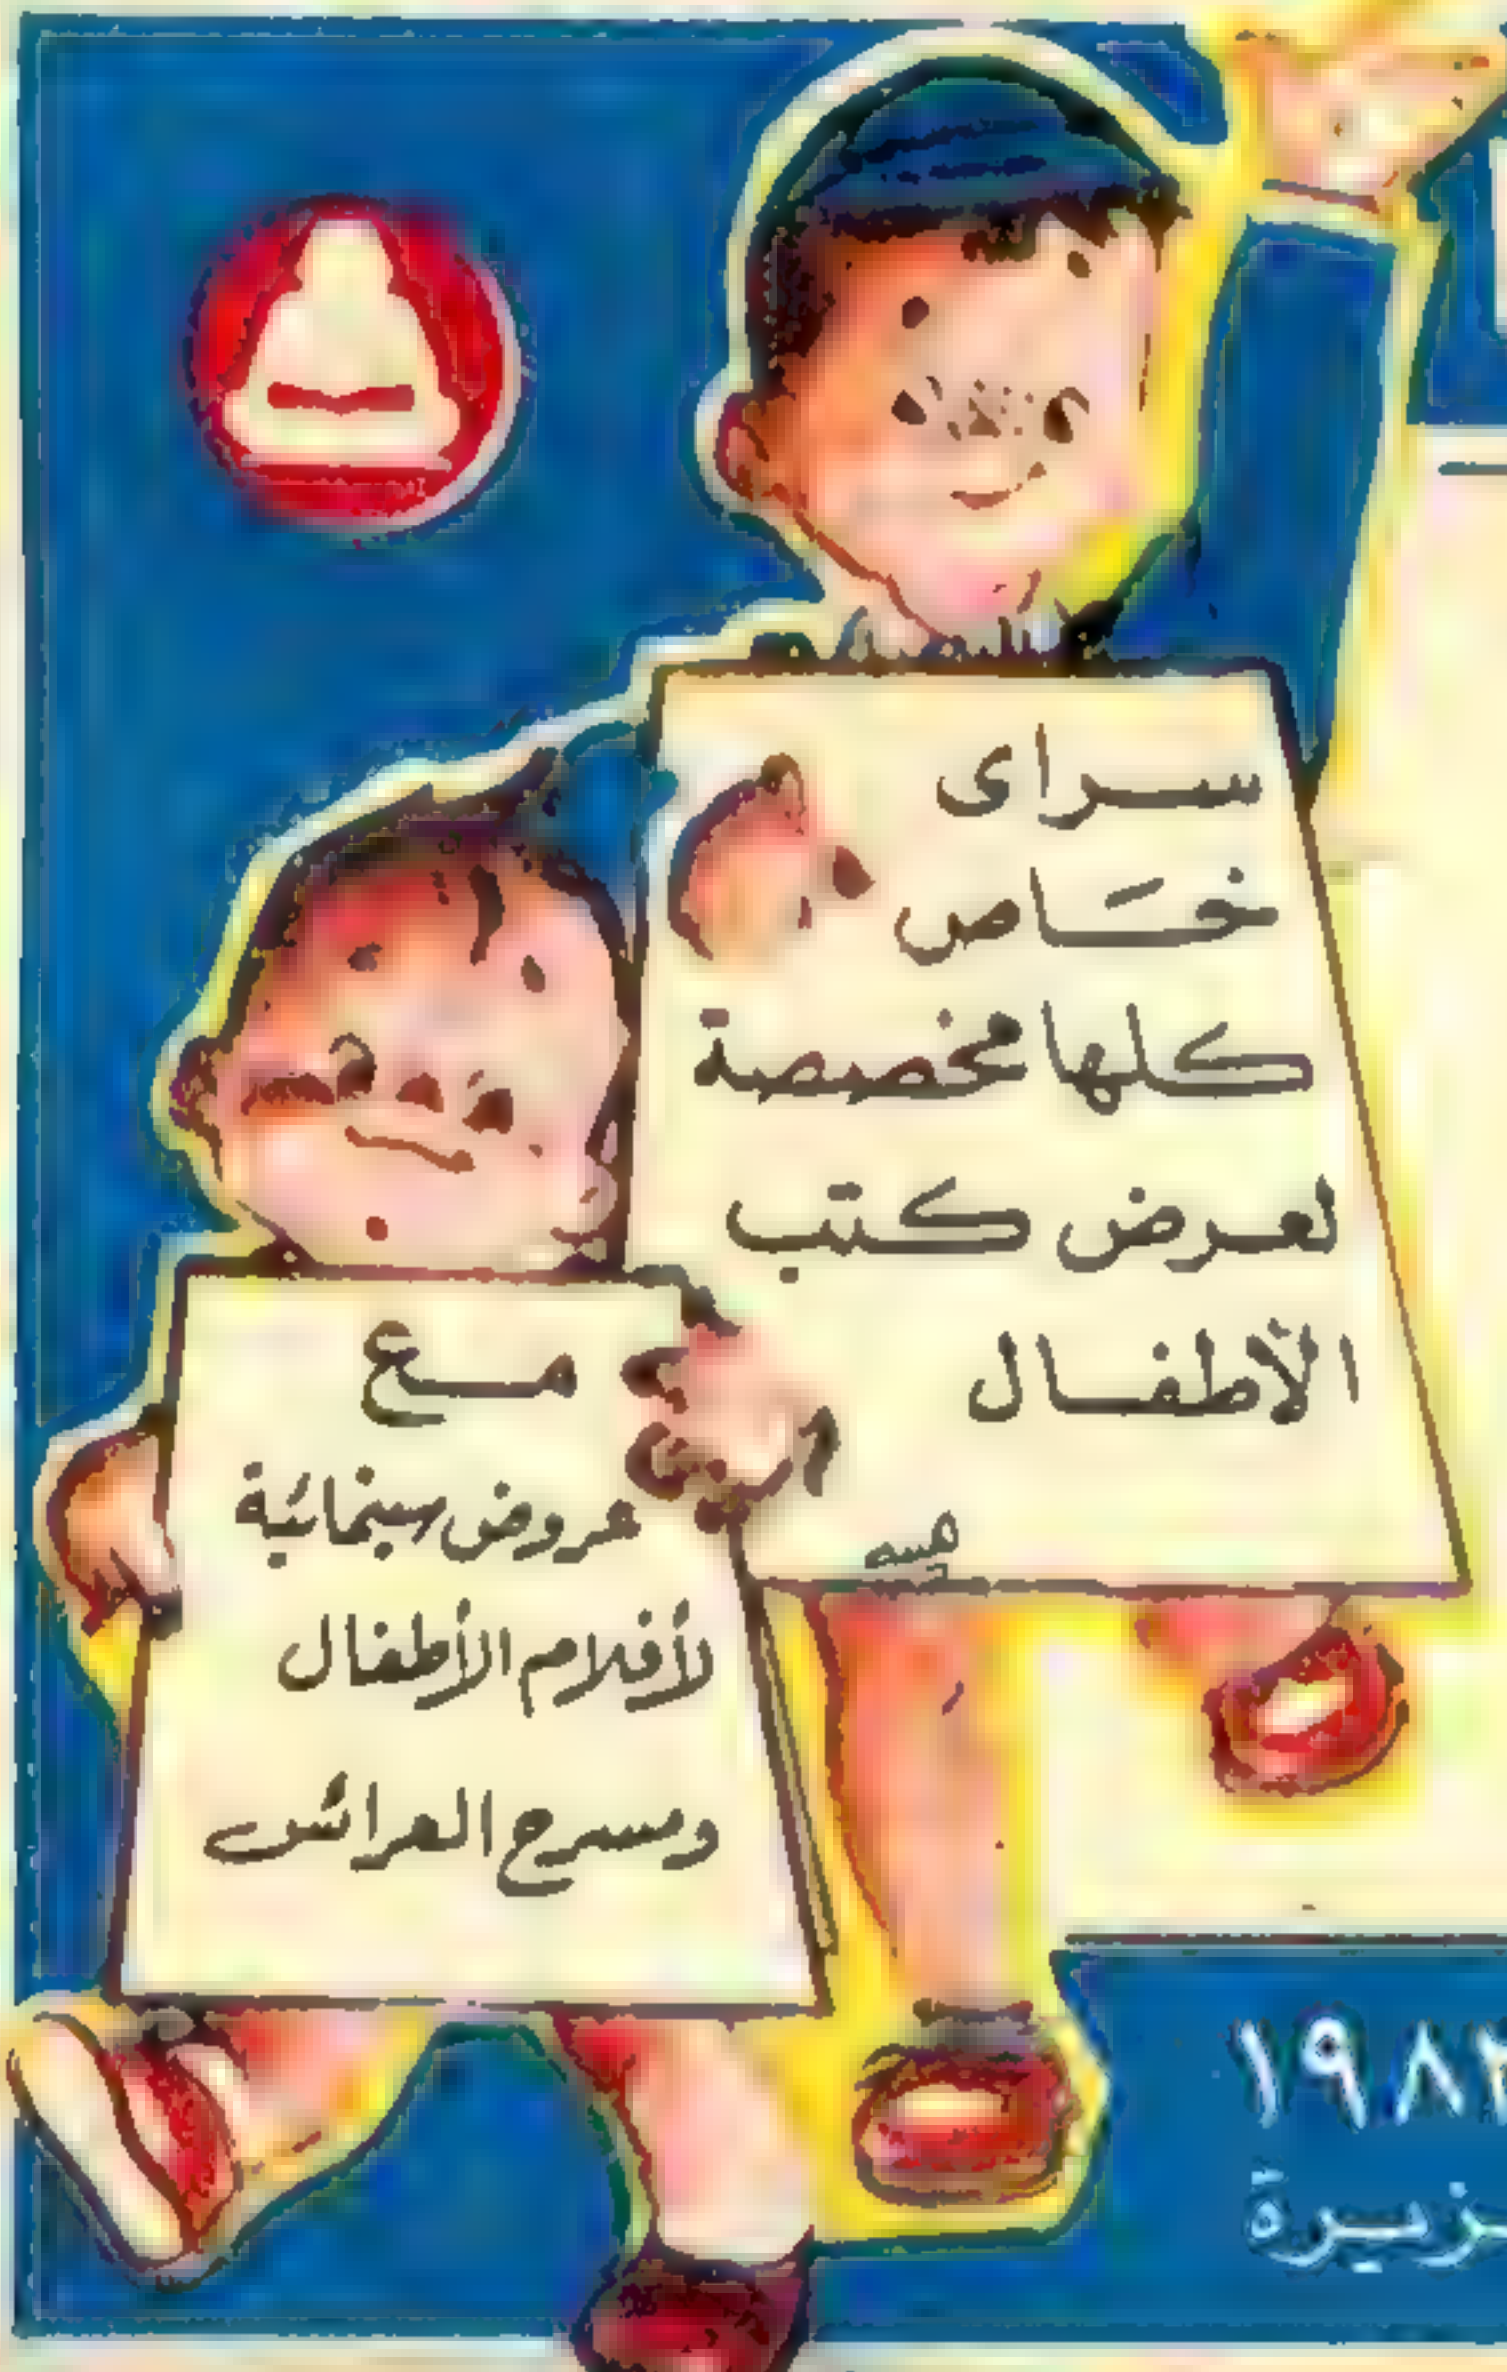 سراى
خاص
كلها مخصصة
لعرض كتب
الأطفال
مع
عروض سينمائية
لأفلام الأطفال
ومسرح العرائس